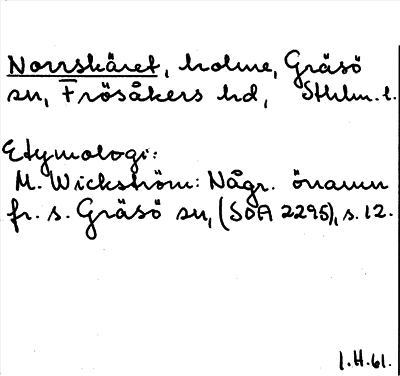 Norrskäret, holme, Gräsö
sn, Frösåkers hd, Sthlm. l.
Etymologi:
M. Wickström: Någr. önamn
fr. s. Gräsö sn, (SOA 2295), s. 12.
I.H.61.